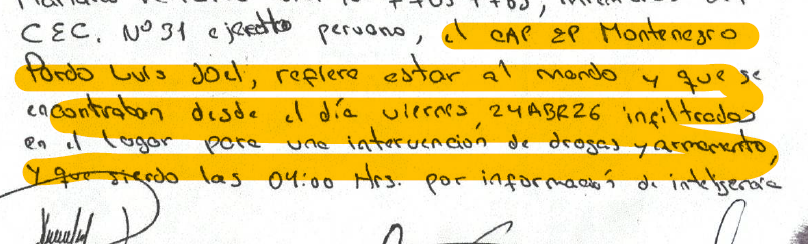 CEC. Nº31 ejercito peruano, el CAP EP Montenegro
Pardo Luis Joel, refiere estar al mando y que se
encontraban desde el día viernes, 24ABR26 infiltrados
en el lugar para una intervención de drogas y armamento,
y que siendo las 04:00 Hrs. por información de inteligencia